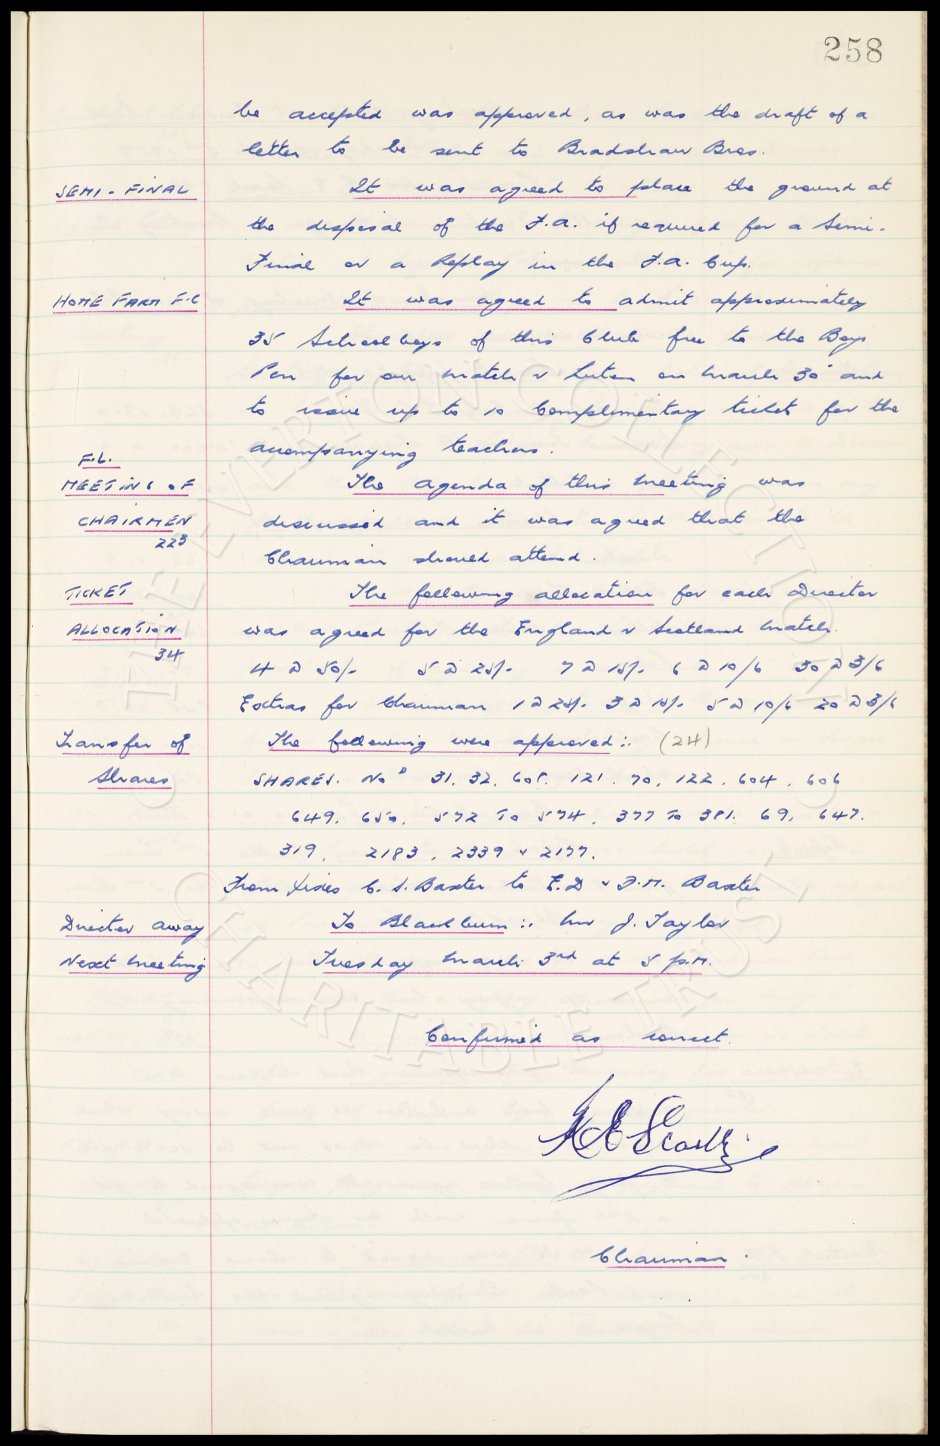 258
be accepted was approved, as was the draft of a
letter to be sent to Bradshaw Bros.
SEMI-FINAL It was agreed to place the ground at
the disposal of the F.A. if required for a Semi-
Final or a Replay in the F.A. Cup.
HOME FARM F.C It was agreed to admit approximately
35 Schoolboys of this Club free to the Boys
Pen for our match v Luton on March 30th and
to issue up to 10 Complimentary ticket for the
accompanying teachers.
F.L.
MEETING OF The agenda of this meeting was
CHAIRMEN discussed and it was agreed that the
223 Chairman should attend.
TICKET The following allocation for each Director
ALLOCATION was agreed for the England v Scotland match.
34
4 @ 50/- 5 @ 25/- 7 @ 15/- 6 @ 10/6 30 @ 3/6
Extras for Chairman 1 @ 25/- 3 @ 15/- 5 @ 10/6 20 @ 3/6
Transfer of The following were approved:. (24)
Shares SHARES. Nos 31. 32. 608. 121. 70. 122. 604. 606
649. 650. 572 TO 574. 377 TO 381. 69. 647.
319. 2183. 2339 & 2177.
From Exors C. S. Baxter to E.D & F.M. Baxter
Director away To Blackburn:. Mr J. Taylor
Next meeting Tuesday March 3rd at 5 p.m.
Confirmed as correct.
Chairman.
THE EVERTON COLLECTION
CHARITABLE TRUST